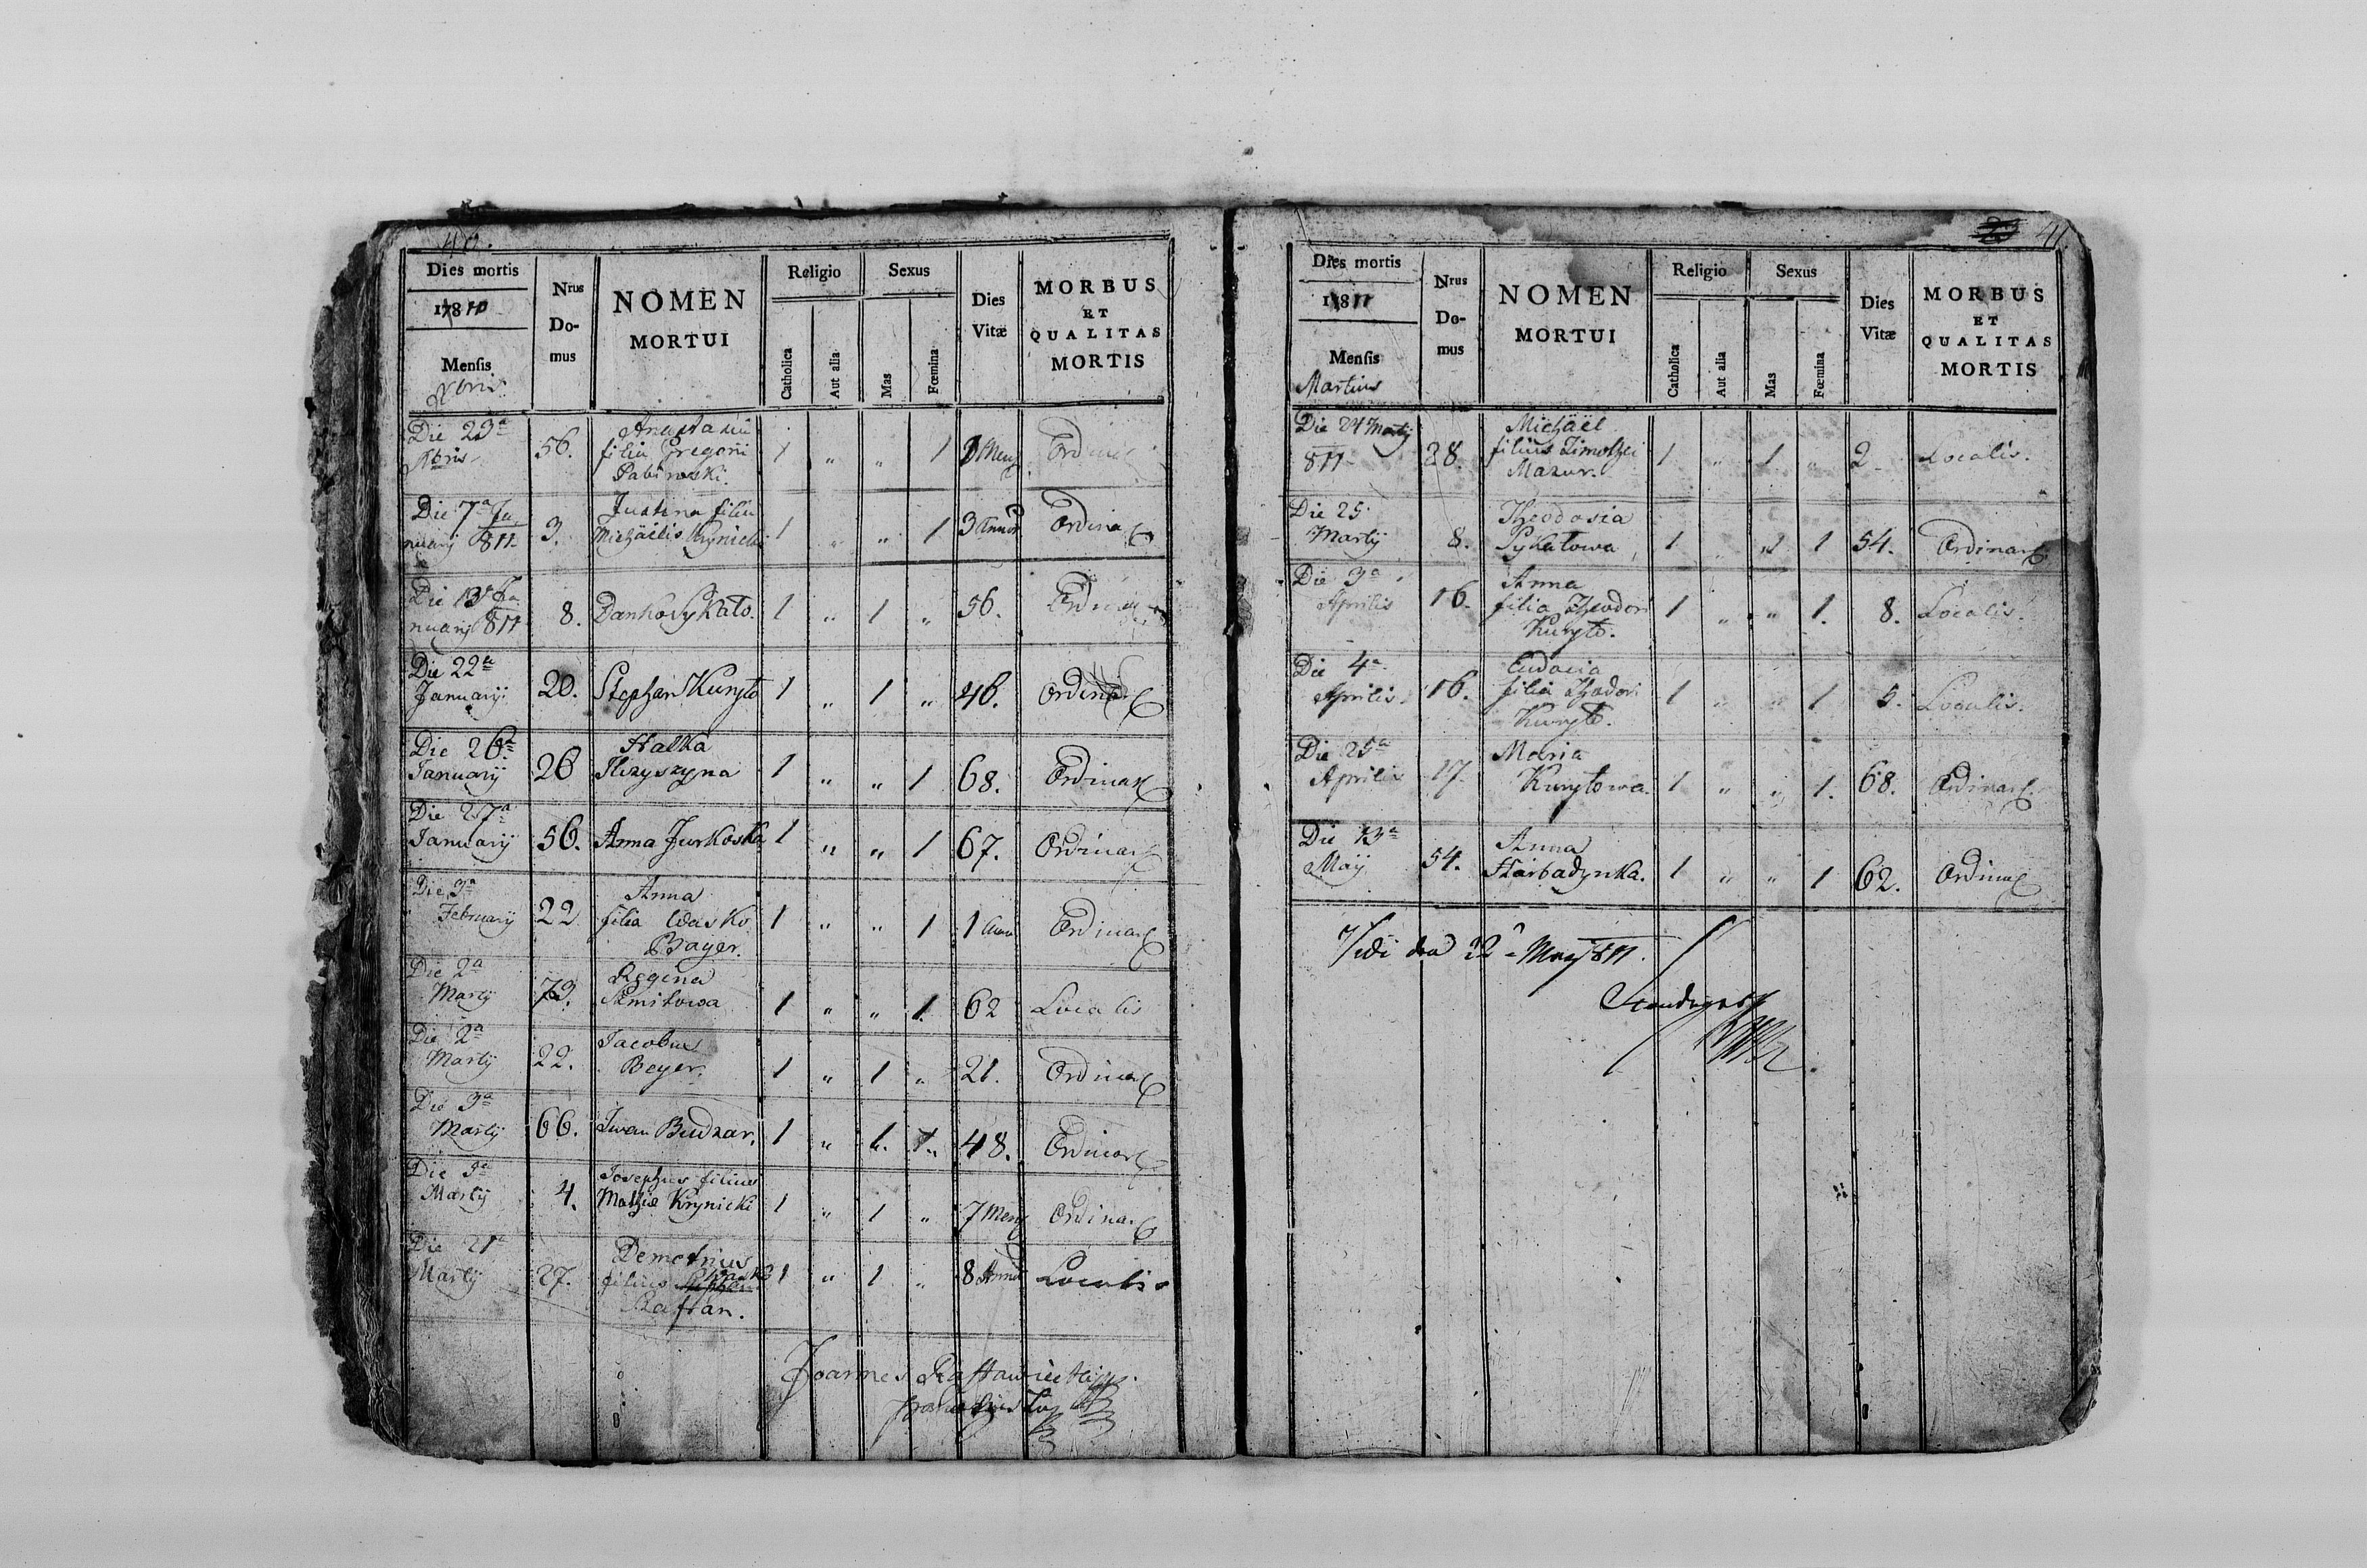 40.
Dies mortis
Nrus Domus
NOMEN MORTUI
Religio
Catholica
Aut alia
Sexus
Mas
Fœmina
Dies Vitæ
MORBUS ET QUALITAS MORTIS
17810
Mensis
Xbris
Die 29a 56. 1 " " 1 Mens Ordinar
Xbris filia Gregorii
Die 7a Ja Justina filia
nuarij 811 3. Michäelis Krynicki 1 " " 1 3 Annor Ordinar
Die 13a Ja
nuarij 811 8. Danko Sykato. 1 " 1 " 56. Ordinar
Die 22a
Januarij 20. Stephan Kuryto 1 " 1 " 46. Ordinar
Die 26a Halka
Januarij 26 1 " " 1 68. Ordinar
Die 27a
Januarij 56. Anna Jurkoska 1 " " 1 67. Ordinar
Die 3a Anna
Februarij 22 filia Wasko 1 " " 1 1 Ordinar
Bayer.
Die 2a Regina
Martij 79. 1 " " 1. 62 Localis
Die 2a Jacobus
Martij 22. Beyer. 1 " 1 " 21. Ordinar
Die 3a
Martij 66. Iwan Budzar. 1 " 1. " 48. Ordinar
Die 9a Josephus filius
Martij 4. Mathiæ Krynicki 1 " 1 " 7 Mens Ordinar
Die 21a Demetrius
Martij 27. filius 1 " 1 " 8 Annor Localis
Kaftan.
Joannes
41.
Dies mortis
Nrus Domus
NOMEN MORTUI
Religio
Catholica
Aut alia
Sexus
Mas
Fœmina
Dies Vitæ
MORBUS ET QUALITAS MORTIS
1811
Mensis
Martius
Die 24 Martij Michäel
811 28. filius Timothei 1 " 1 " 2 Localis.
Mazur.
Die 25 Theodosia
Martij 8. Sykatowa 1 " " 1 54. Ordinar
Die 3a Anna
Aprilis 16. filia Theodori 1 " " 1. 8. Localis.
Kuryto.
Die 4a Eudocia
Aprilis 16. filia Theodori 1 " " 1 5. Localis.
Kuryto.
Die 25a Maria
Aprilis 17. Kurytowa. 1 " " 1. 68. Ordinar
Die 13a Anna
Maij 54. Harbadynka. 1 " " 1 62. Ordinar
Vidi 22a Maij 811.